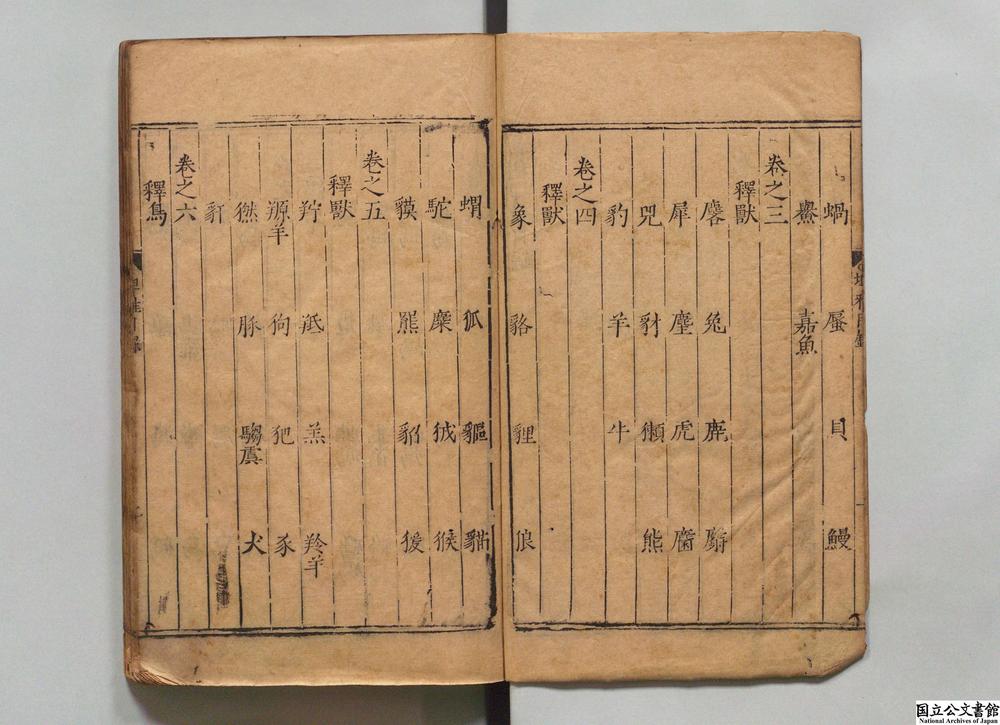 埤雅目錄
蝸 蜃 貝 鰻
鱟 嘉魚
卷之三
釋獸
麐 兔 鹿 麝
犀 麈 虎 麕
兕 豺 獺 熊
豹 羊 牛
卷之四
釋獸
象 貉 貍 狼
蝟 狐 貙 貓
駝 麋 狨 猴
貘 羆 貂 猨
卷之五
釋獸
羜 羝 羔 羚羊
羱羊 狗 豝 豕
豚 騶虞 犬
豻
卷之六
釋鳥
埤雅目錄
国立公文書館
National Archives of Japan